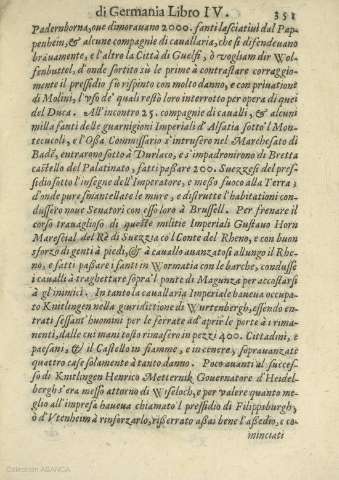 di Germania Libro IV. 351
Padernborna, oue dimorauano 2000. fanti lasciatiui dal Pap-
penheim, & alcune compagnie di cauallaria, che si difendeuano
brauamente, e l'altro la Città di Guelfi, ò vogliam dir Wol-
fenbuttel, d'onde sortito sù le prime à contrastare corraggio-
mente il pressidio fù rispinto con molto danno, e con priuatione
di Molini, l'vso de' quali restò loro interrotto per opera di quei
del Duca. All'incontro 25. compagnie di caualli, & alcuni
milla fanti delle guarnigioni Imperiali d'Alsatia sotto'l Mon-
tecucoli, e l'Ossa Commissario s'intrusero nel Marchesato di
Badē, entrarono sotto à Durlaco, e s'impadronirono di Bretta
castello del Palatinato, fatti passare 200. Suezzesi del pres-
sidio sotto l'insegne dell'Imperatore, e messo fuoco alla Terra;
d'onde pure smantellate le mure, e distrutte l'habitationi con-
dussero noue Senatori con esso loro à Brussell. Per frenare il
corso trauaglioso di queste militie Imperiali Gustauo Horn
Marescial del Rè di Suezzia co'l Conte del Rheno, e con buon
sforzo di genti à piedi, & à cauallo auanzatosi allungo il Rhe-
no, e fatti passare i fanti in Wormatia con le barche, condusse
i caualli à traghettare sopra'l ponte di Magunza per accostarsi
à gl'inimici. In tanto la cauallaria Imperiale haueua occupa-
to Knitlingen nella giuridittione di Wurtenbergh, essendo en-
trati sessant'huomini per le ferrate ad aprir le porte à i rima-
nenti, dalle cui mani tosto rimasero in pezzi 400. Cittadini, e
paesani, & il Castello in fiamme, e in cenere, soprauanzate
quattro case solamente à tanto danno. Poco auanti al succes-
so di Knitlingen Henrico Metternik Gouernatore d'Heidel-
bergh s'era messo attorno di Wiseloch, e per valere quanto me-
glio all'impresa haueua chiamato'l pressidio di Filippsburgh,
ò d'Vtenheim à rinforzarlo, risserrato assas bene l'assedio, e co
minciati
Colección ABANCA